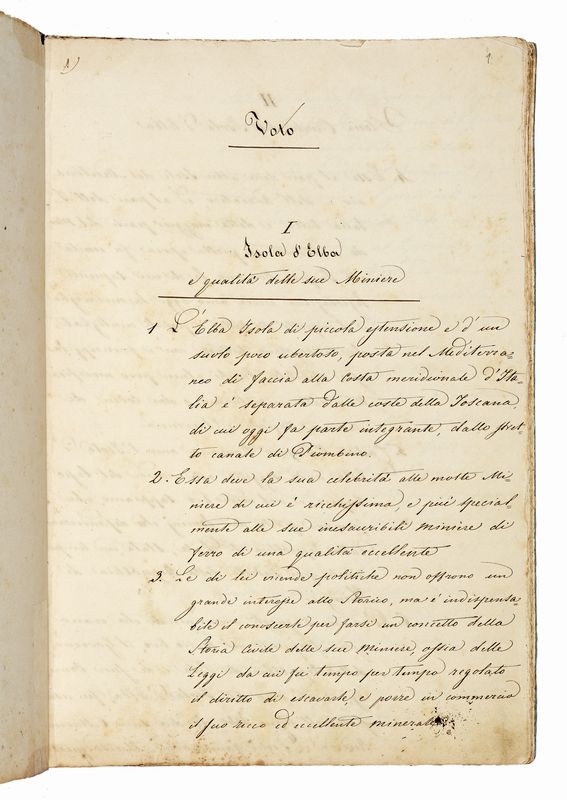 1)
1.
Voto
I
Isola d'Elba
e qualità delle sue Miniere
1 L'Elba Isola di piccola estensione e d'un
suolo poco ubertoso, posta nel Mediterra-
neo di faccia alla Costa meridionale d'Ita-
lia è separata dalle coste della Toscana,
di cui oggi fa parte integrante, dallo stret-
to canale di Piombino.
2. Essa deve la sua celebrità alle molte Mi-
niere di cui è ricchissima, e più special-
mente alle sue inesauribili miniere di
ferro di una qualità eccellente
3. Le di lei vicende politiche non offrono un
grande interesse allo Storico, ma è indispensa-
bile il conoscerle per farsi un concetto della
Storia Civile delle sue Miniere, ossia delle
Leggi da cui fu tempo per tempo regolato
il diritto di escavarle, e porre in commercio
il suo ricco ed eccellente minerale